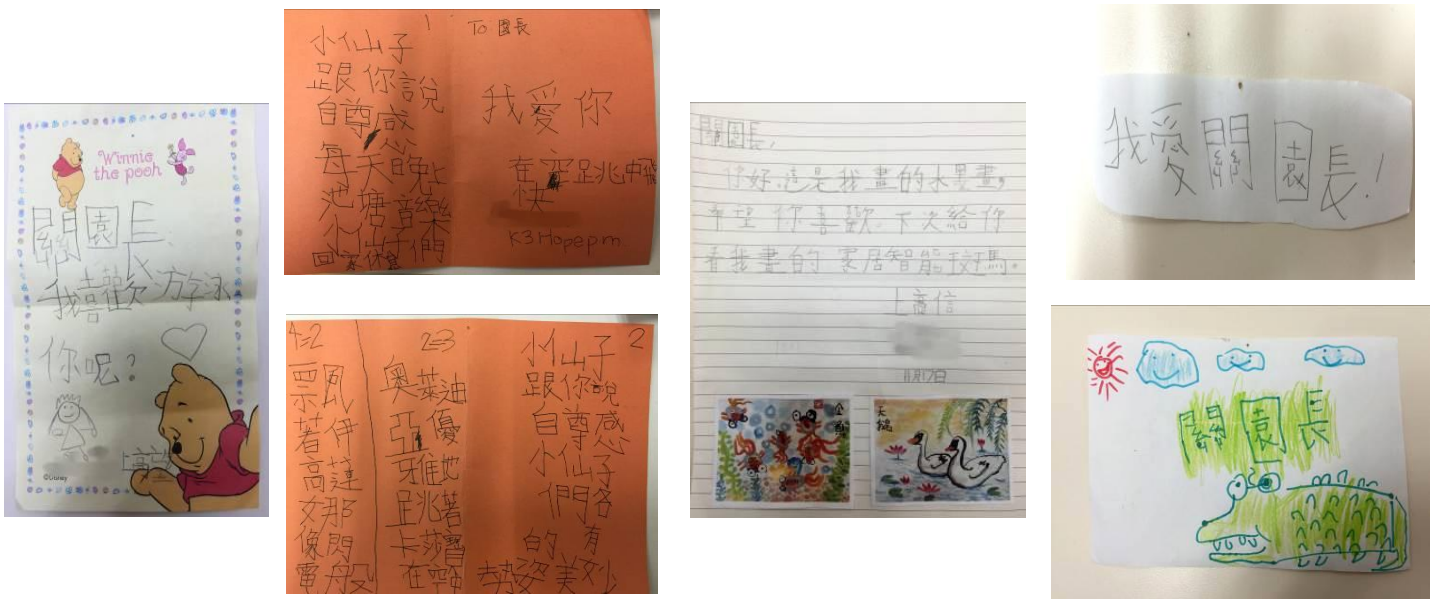 Winnie
the pooh
關園長,
我喜歡游泳
你呢?
©Disney
1
小仙子
跟你說
自尊感
每天晚上
池塘音樂
小仙子們
To 園長
我愛你
在空跳中飛
快
K3 Hope pm.
4=2
票風
著伊
高蓮
女那
像閃
電般
2=3
奧萊油
亞優
牙維她
跳著
卡莎寶
2
小仙子
跟你說
自尊感
小仙子
們各
的有
勢姿美妙
關園長,
你好,這是我畫的水墨畫,
希望你喜歡.下次給你
看我畫的家居智能
上高信
11月17日
金魚
天鵝
我愛關園長!
關園長